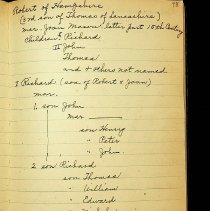 78
Robert of Hempshire
(3rd son of Thomas of Lancashire)
mar. Joan                , latter part 15th Century
Children, Richard
II John
Thomas
and 4 others not named
I Richard (son of Robert & Joan)
mar.
1. son John
mar
son Henry
" Peter
" John
2 son Richard
son Thomas
" William
" Edward